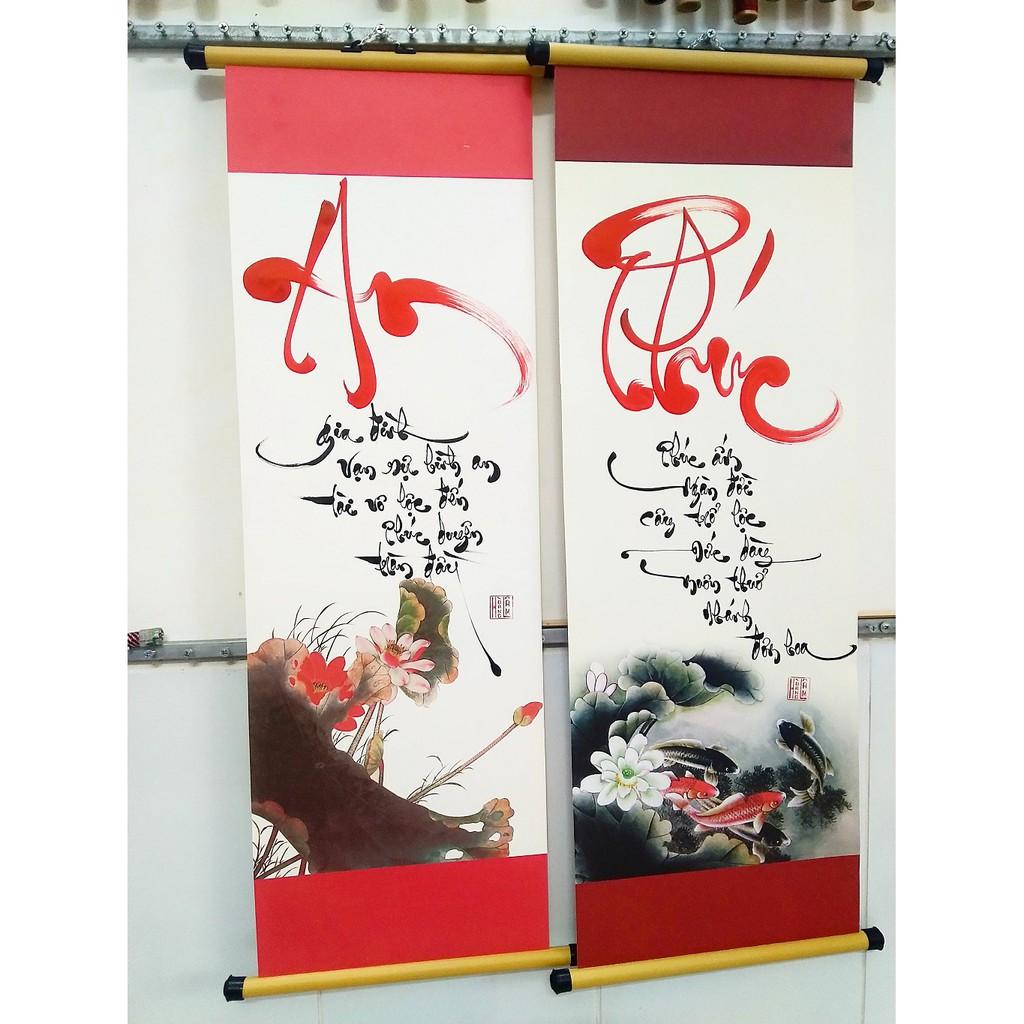 An
gia đình
vạn sự bình an
tài vô lộc đến
Phúc duyên
tràn đầy
Phúc
Phúc ấm
ngàn đời
cây trổ lộc
Đức dày
muôn thuở
Nhánh
đơm hoa